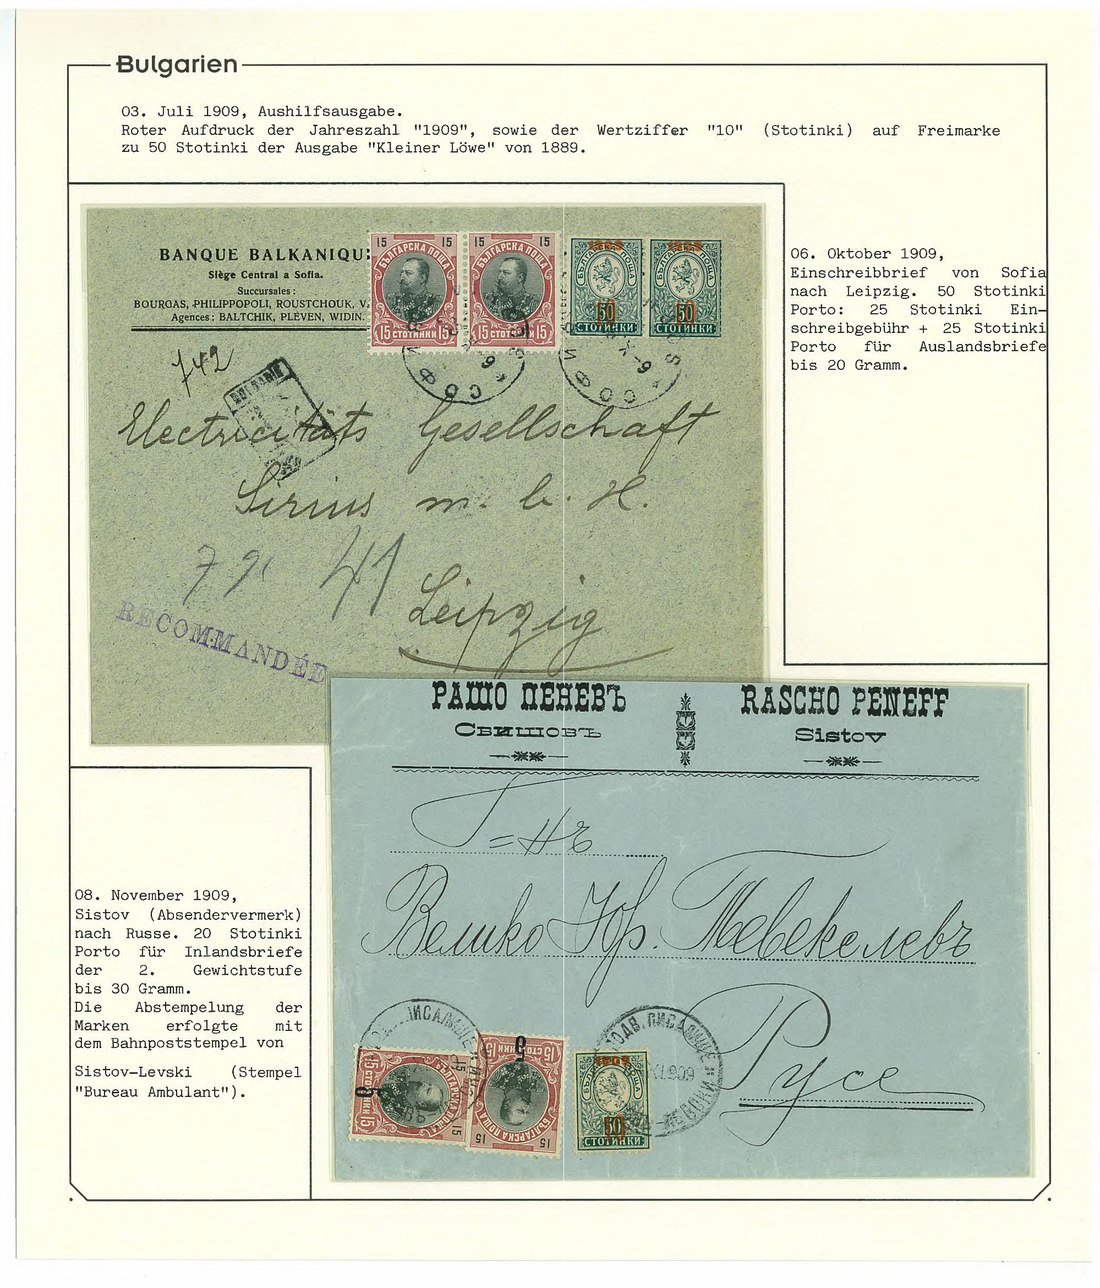 Bulgarien
03. Juli 1909, Aushilfsausgabe.
Roter Aufdruck der Jahreszahl "1909", sowie der Wertziffer "10" (Stotinki) auf Freimarke
zu 50 Stotinki der Ausgabe "Kleiner Löwe" von 1889.
BANQUE BALKANIQU
Siège Central a Sofia.
Succursales:
BOURGAS, PHILIPPOPOLI, ROUSTCHOUK, V
Agences: BALTCHIK, PLÉVEN, WIDIN.
15 15
БЪЛГАРСКА ПОЩА
15 СТОТИНКИ 15
15 15
БЪЛГАРСКА ПОЩА
15 СТОТИНКИ 15
1909
БЪЛГАРСКА ПОЩА
СТОТИНКИ
1909
БЪЛГАРСКА ПОЩА
СТОТИНКИ
742
BULGARIE
Electricitäts Gesellschaft
Sirius m. b. H.
791 41
Leipzig
RECOMMANDÉE
06. Oktober 1909,
Einschreibbrief von Sofia
nach Leipzig. 50 Stotinki
Porto: 25 Stotinki Ein-
schreibgebühr + 25 Stotinki
Porto für Auslandsbriefe
bis 20 Gramm.
РАШО ПЕНЕВЪ
Свищовъ
RASCHO PENEFF
Sistov
Г=нъ
Велико Юр. Тевекелевъ
Русе
08. November 1909,
Sistov (Absendervermerk)
nach Russe. 20 Stotinki
Porto für Inlandsbriefe
der 2. Gewichtstufe
bis 30 Gramm.
Die Abstempelung der
Marken erfolgte mit
dem Bahnpoststempel von
Sistov-Levski (Stempel
"Bureau Ambulant").
15 СТОТИНКИ
БЪЛГАРСКА ПОЩА
15
5
15 СТОТИНКИ 15
БЪЛГАРСКА ПОЩА
15 15
1909
БЪЛГАРСКА ПОЩА
СТОТИНКИ
ПОДВ. ПИСАЛИЩЕ